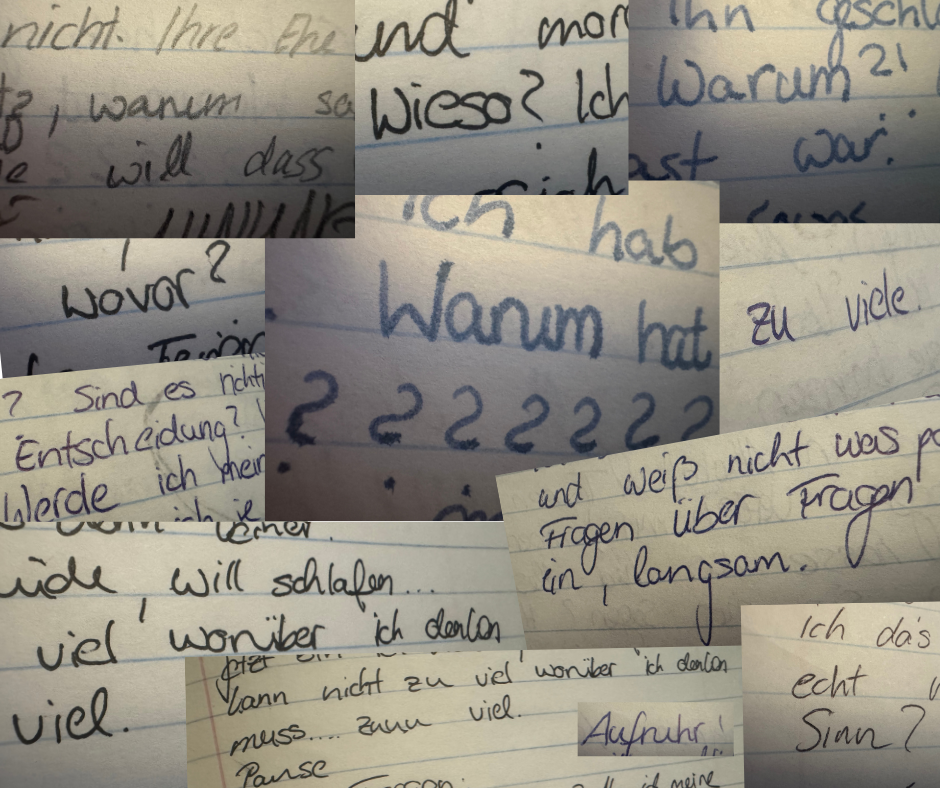 nicht. Ihre Ehe
, warum
will dass
und mor
Wieso? Ich
Ihn geschl
Warum?!
ast war.
wovor?
ich hab
Warum hat
? ? ? ? ? ? ?
zu viele.
? Sind es richti
Entscheidung?
Werde ich
und weiß nicht was
Fragen über Fragen
in, langsam.
, will schlafen...
viel worüber ich denken
viel.
kann nicht zu viel worüber ich denken
muss.... zuuu viel.
Pause
Aufruhr!
ich meine
ich das
echt
Sinn?